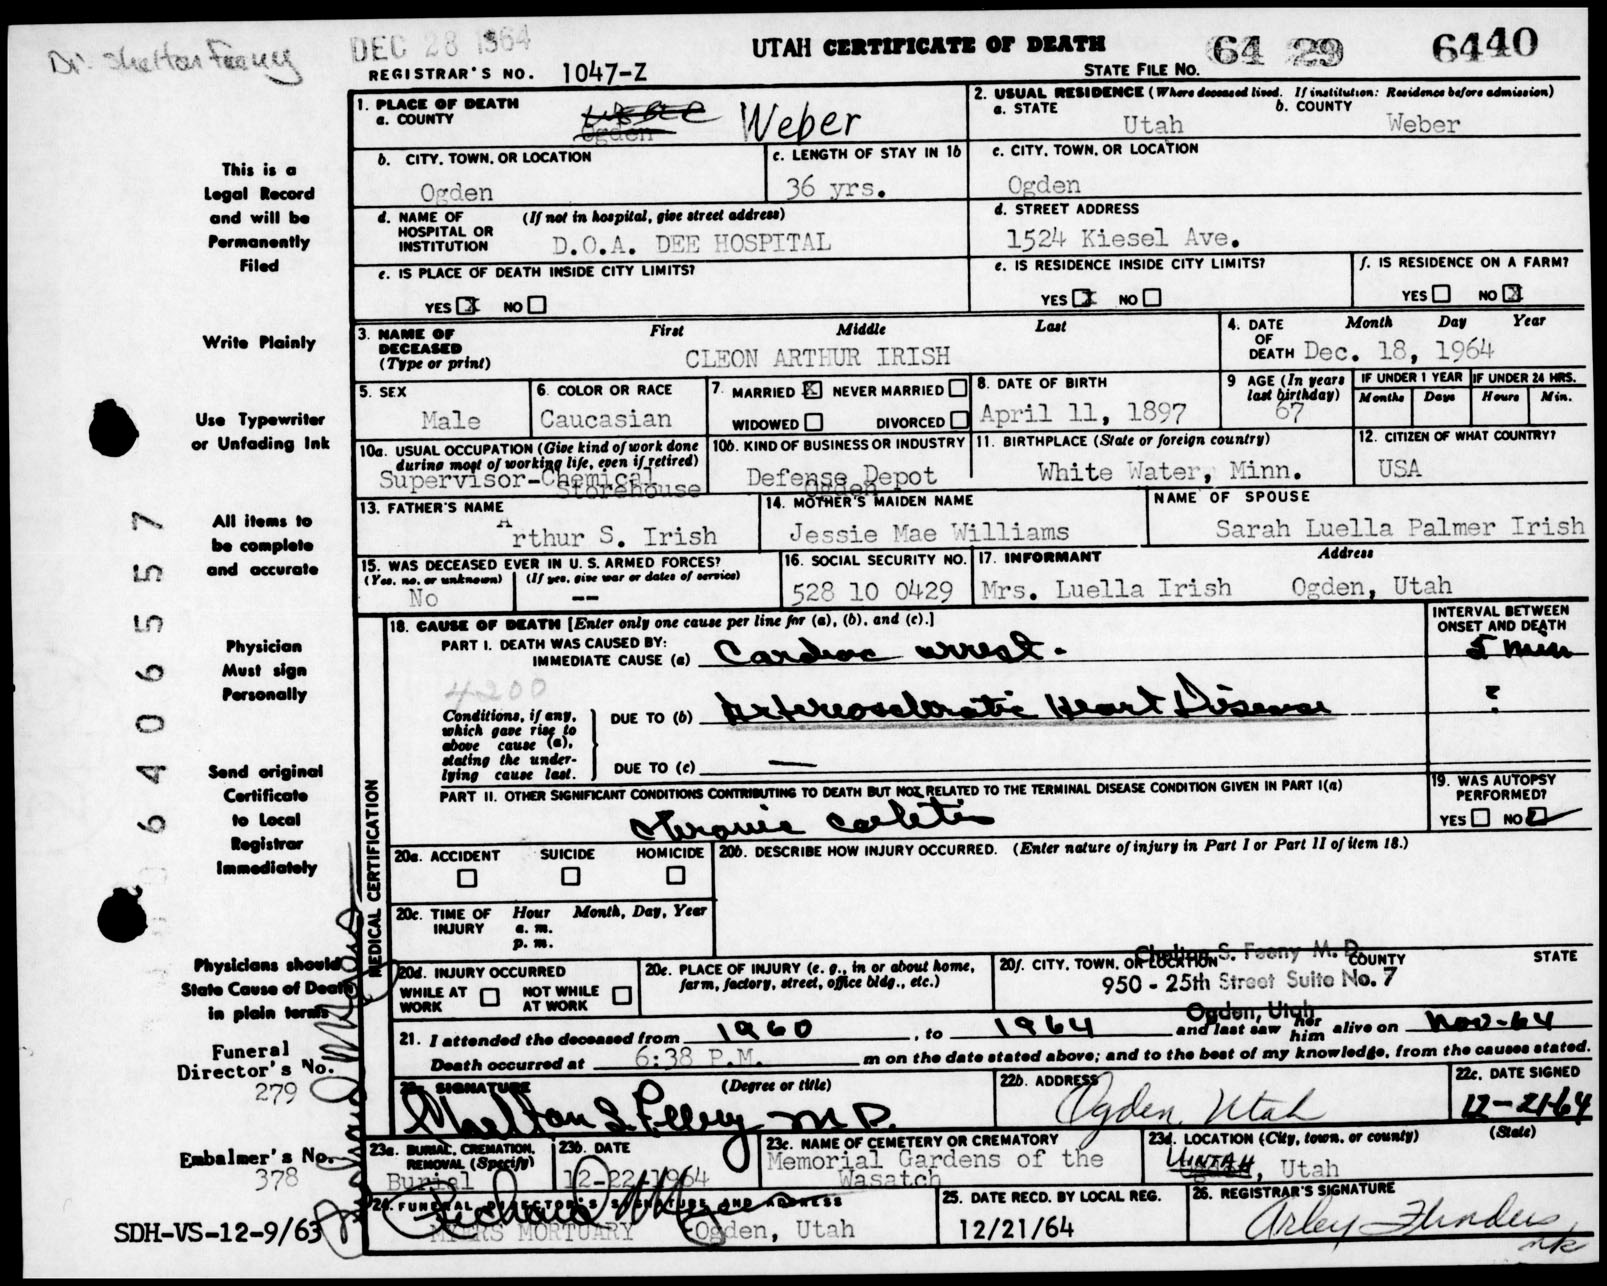 Dr. Shelton Feeny
DEC 28 1964
UTAH CERTIFICATE OF DEATH
64 29 6440
REGISTRAR'S NO. 1047-Z
STATE FILE NO.
1. PLACE OF DEATH
a. COUNTY
Ogden Weber
2. USUAL RESIDENCE (Where deceased lived. If institution: Residence before admission)
a. STATE b. COUNTY
Utah Weber
b. CITY, TOWN, OR LOCATION
Ogden
c. LENGTH OF STAY IN 1b
36 yrs.
c. CITY, TOWN, OR LOCATION
Ogden
d. NAME OF HOSPITAL OR INSTITUTION (If not in hospital, give street address)
D.O.A. DEE HOSPITAL
d. STREET ADDRESS
1524 Kiesel Ave.
e. IS PLACE OF DEATH INSIDE CITY LIMITS?
YES X NO
e. IS RESIDENCE INSIDE CITY LIMITS?
YES X NO
f. IS RESIDENCE ON A FARM?
YES NO X
3. NAME OF DECEASED (Type or print)
First Middle Last
CLEON ARTHUR IRISH
4. DATE OF DEATH
Month Day Year
Dec. 18, 1964
5. SEX
Male
6. COLOR OR RACE
Caucasian
7. MARRIED X NEVER MARRIED
WIDOWED DIVORCED
8. DATE OF BIRTH
April 11, 1897
9 AGE (In years last birthday)
67
IF UNDER 1 YEAR
Months Days
IF UNDER 24 HRS.
Hours Min.
10a. USUAL OCCUPATION (Give kind of work done during most of working life, even if retired)
Supervisor-Chemical
Storehouse
10b. KIND OF BUSINESS OR INDUSTRY
Defense Depot
Ogden
11. BIRTHPLACE (State or foreign country)
White Water, Minn.
12. CITIZEN OF WHAT COUNTRY?
USA
13. FATHER'S NAME
Arthur S. Irish
14. MOTHER'S MAIDEN NAME
Jessie Mae Williams
NAME OF SPOUSE
Sarah Luella Palmer Irish
15. WAS DECEASED EVER IN U. S. ARMED FORCES?
(Yes, no, or unknown) (If yes, give war or dates of service)
No --
16. SOCIAL SECURITY NO.
528 10 0429
17. INFORMANT Address
Mrs. Luella Irish Ogden, Utah
MEDICAL CERTIFICATION
18. CAUSE OF DEATH [Enter only one cause per line for (a), (b), and (c).]
INTERVAL BETWEEN ONSET AND DEATH
PART I. DEATH WAS CAUSED BY:
IMMEDIATE CAUSE (a) Cardiac arrest. 5 min
4200
Conditions, if any, which gave rise to above cause (a), stating the underlying cause last.
DUE TO (b) Arteriosclerotic Heart Disease ?
DUE TO (c) —
PART II. OTHER SIGNIFICANT CONDITIONS CONTRIBUTING TO DEATH BUT NOT RELATED TO THE TERMINAL DISEASE CONDITION GIVEN IN PART I(a)
Chronic colitis
19. WAS AUTOPSY PERFORMED?
YES NO
20a. ACCIDENT SUICIDE HOMICIDE
20b. DESCRIBE HOW INJURY OCCURRED. (Enter nature of injury in Part I or Part II of item 18.)
20c. TIME OF INJURY
Hour Month, Day, Year
a. m.
p. m.
20d. INJURY OCCURRED
WHILE AT WORK NOT WHILE AT WORK
20e. PLACE OF INJURY (e. g., in or about home, farm, factory, street, office bldg., etc.)
20f. CITY, TOWN, OR LOCATION COUNTY STATE
Shelton S. Feeny M. D.
950 - 25th Street Suite No. 7
Ogden, Utah
21. I attended the deceased from 1960, to 1964 and last saw her him alive on Nov-64
Death occurred at 6:38 P.M. m on the date stated above; and to the best of my knowledge, from the causes stated.
22a. SIGNATURE (Degree or title)
Shelton S. Feeny M.D.
22b. ADDRESS
Ogden, Utah
22c. DATE SIGNED
12-21-64
23a. BURIAL, CREMATION, REMOVAL (Specify)
Burial
23b. DATE
12-22-1964
23c. NAME OF CEMETERY OR CREMATORY
Memorial Gardens of the
Wasatch
23d. LOCATION (City, town, or county) (State)
UINTAH, Utah
24. FUNERAL DIRECTOR'S SIGNATURE AND ADDRESS
Richard Myers
MYERS MORTUARY Ogden, Utah
25. DATE RECD. BY LOCAL REG.
12/21/64
26. REGISTRAR'S SIGNATURE
Arley Flinders
This is a
Legal Record
and will be
Permanently
Filed
Write Plainly
Use Typewriter
or Unfading Ink
All items to
be complete
and accurate
Physician
Must sign
Personally
Send original
Certificate
to Local
Registrar
Immediately
Physicians should
State Cause of Death
in plain terms
Funeral
Director's No.
279
Embalmer's No.
378
SDH-VS-12-9/63
Richard Myers